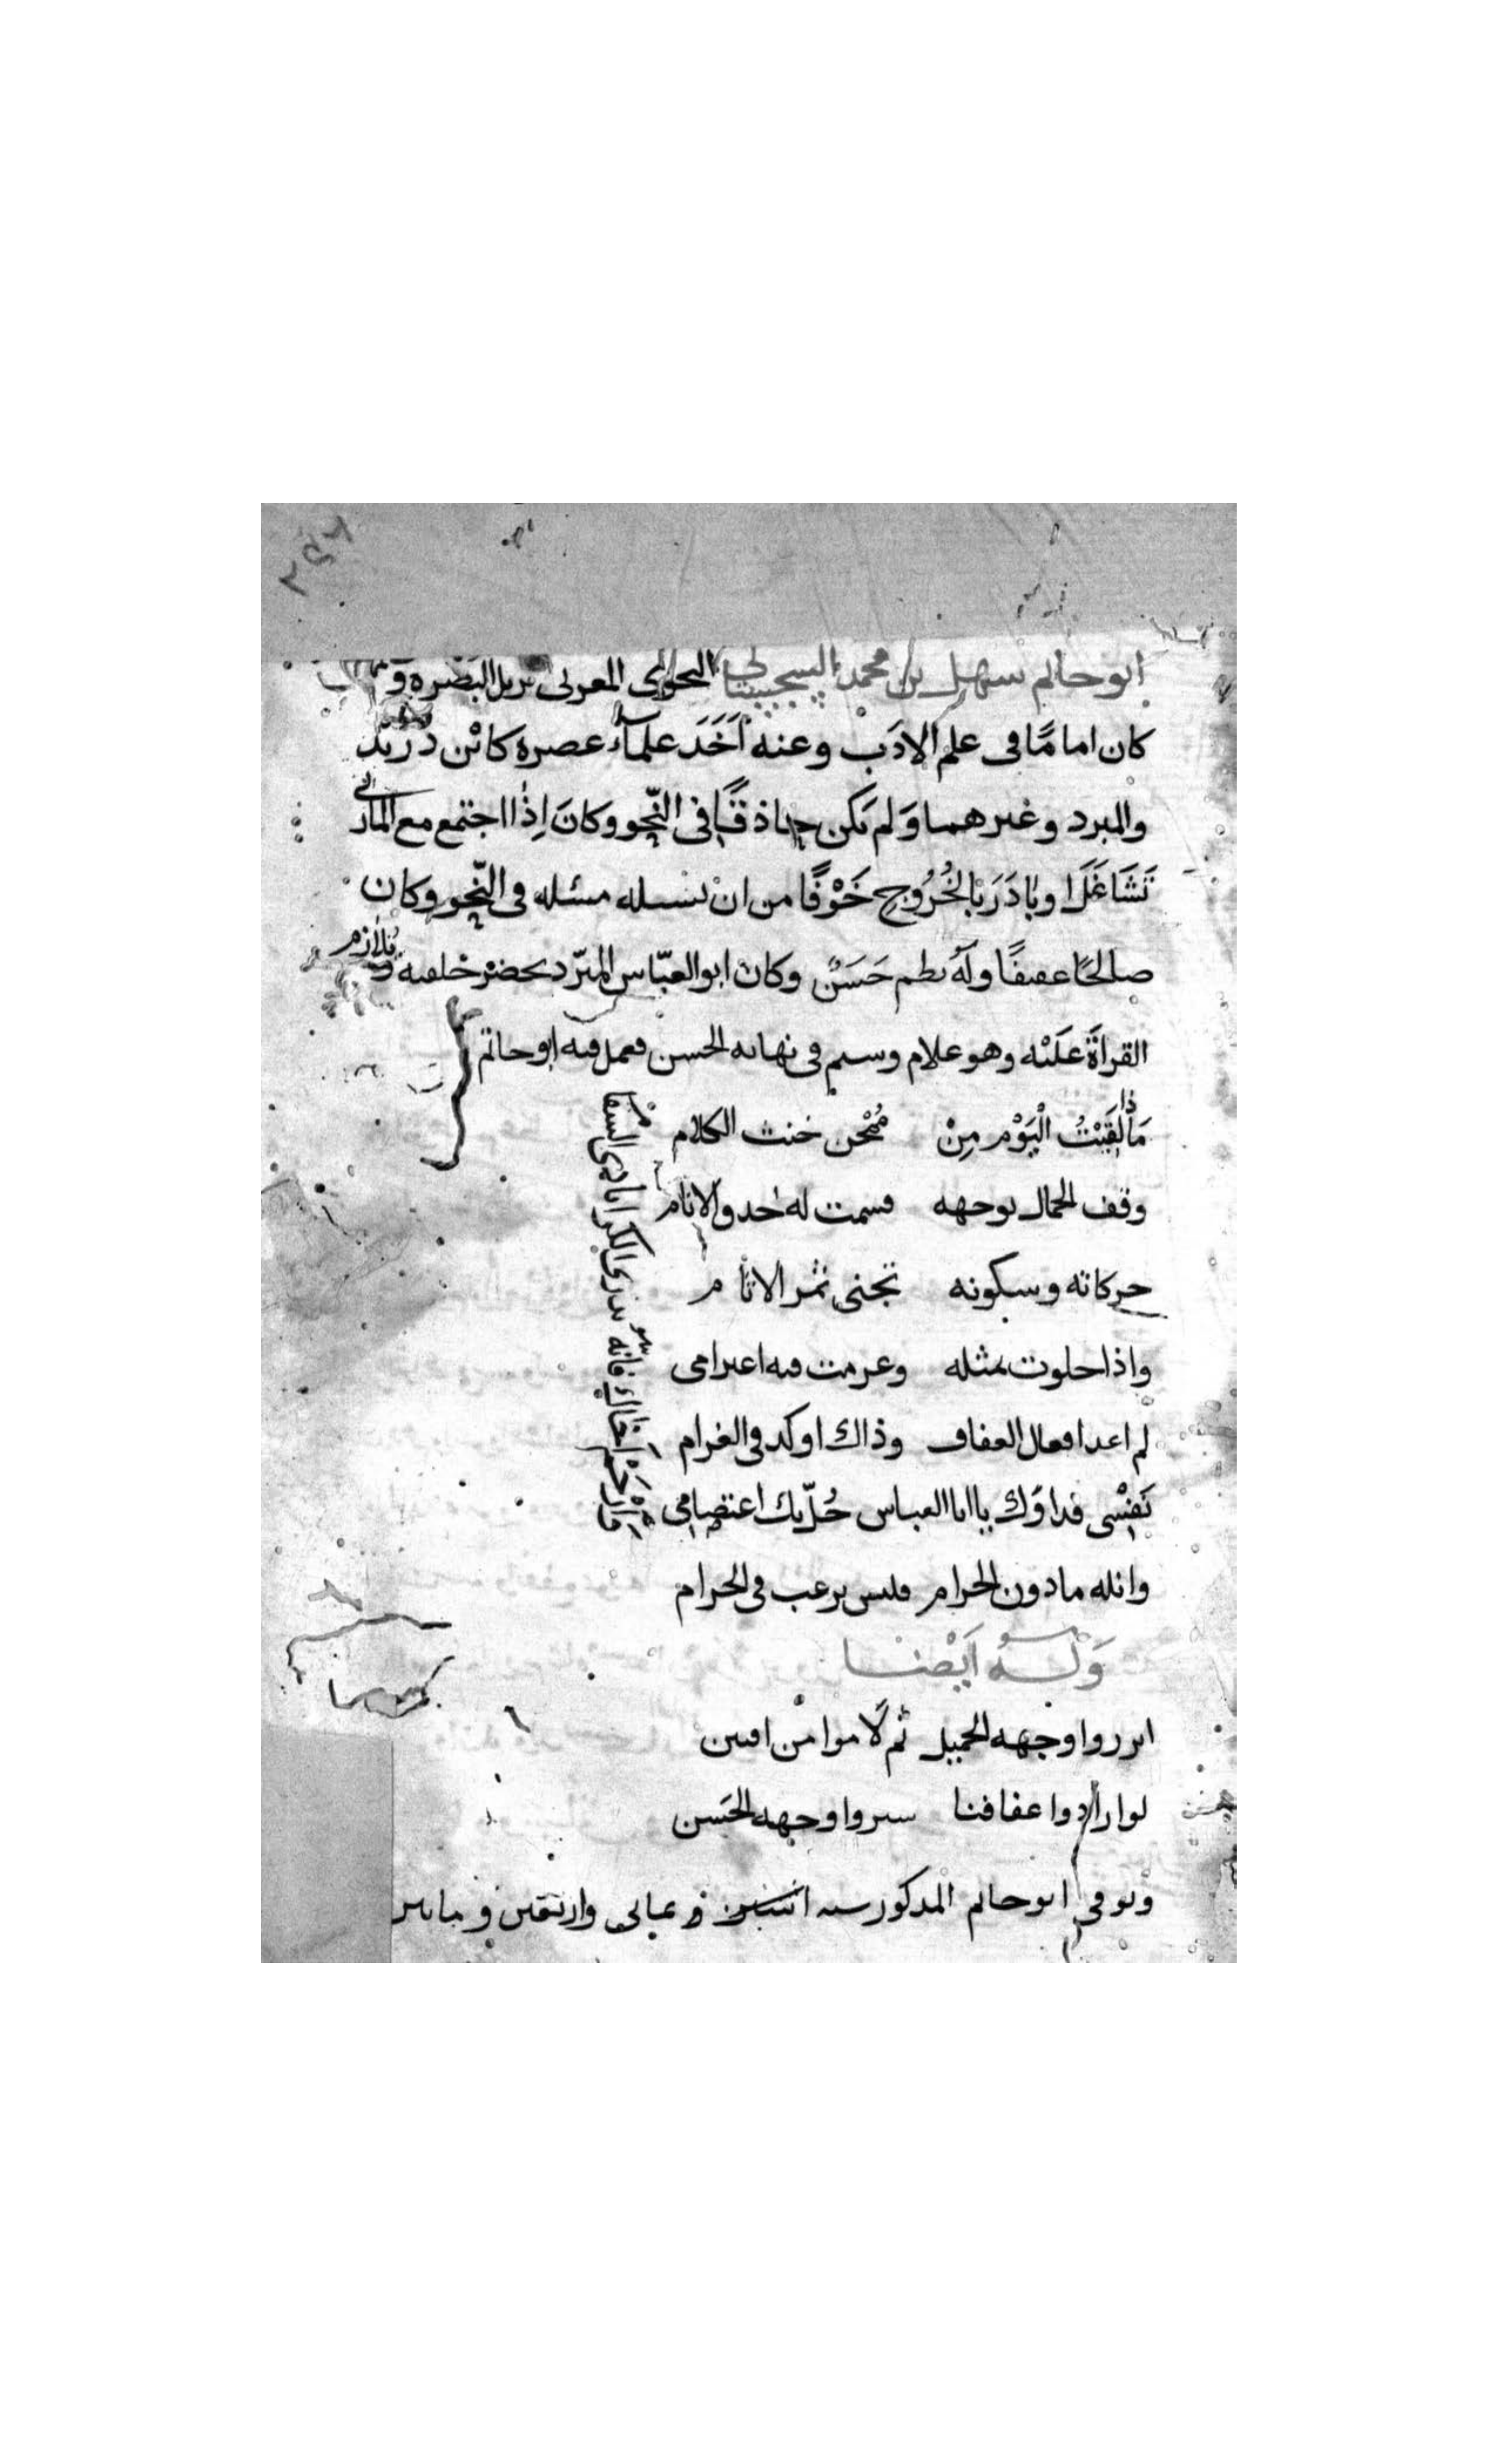 ابو حاتم سهل بن محمد السجستاني النحوي المقرئ نزيل البَصْرة و
كان امامًا في علم الادَب وعنه اَخَذَ علماء عصره كابْن دُرَيد
والمبرد وغيرهما وَلم يَكن حاذقًا في النّحو وكانَ اِذا اجتمع مع المازني
تَشَاغَلَ او بَادَرَ بالخُرُوجِ خَوْفًا من انْ يسله مسله في النّحو وكان
صالحًا عفيفًا وله نظم حَسَنٌ وكان ابو العبّاس المبرّد يحضر حلقته و يُلازم
القراةَ عَلَيْه وهو غلام وسيم في نهاية الحسن فعمل فيه ابو حاتم
مَاذا لَقِيْتُ الْيَوْم مِنْ مُمْجن خنث الكلام
وقف الجمال بوجهه فسمت له حدق الانام
حركاته وسكونه تجنى ثمر الاثام
واذا خلوت بمثله وعزمت فيه اعتزامي
لم اعد افعال العفاف وذاك اوكد في الغرام
نَفْسي فداوَك يا ابا العباس حُلّ بك اعتصامي
فارْحَمْ اخاك فانه نزر الكرى بادي السقام
وانله مادون الحرام فليس يرغب في الحرام
وَلَهُ اَيْضا
ابرزوا وجهه الجميل ثم لَاموا من افتتن
لو ارادوا عفافنا ستروا وجهه الحَسن
وتوفي ابو حاتم المذكور سنه اثنتين و ثماني واربعين و مايتين